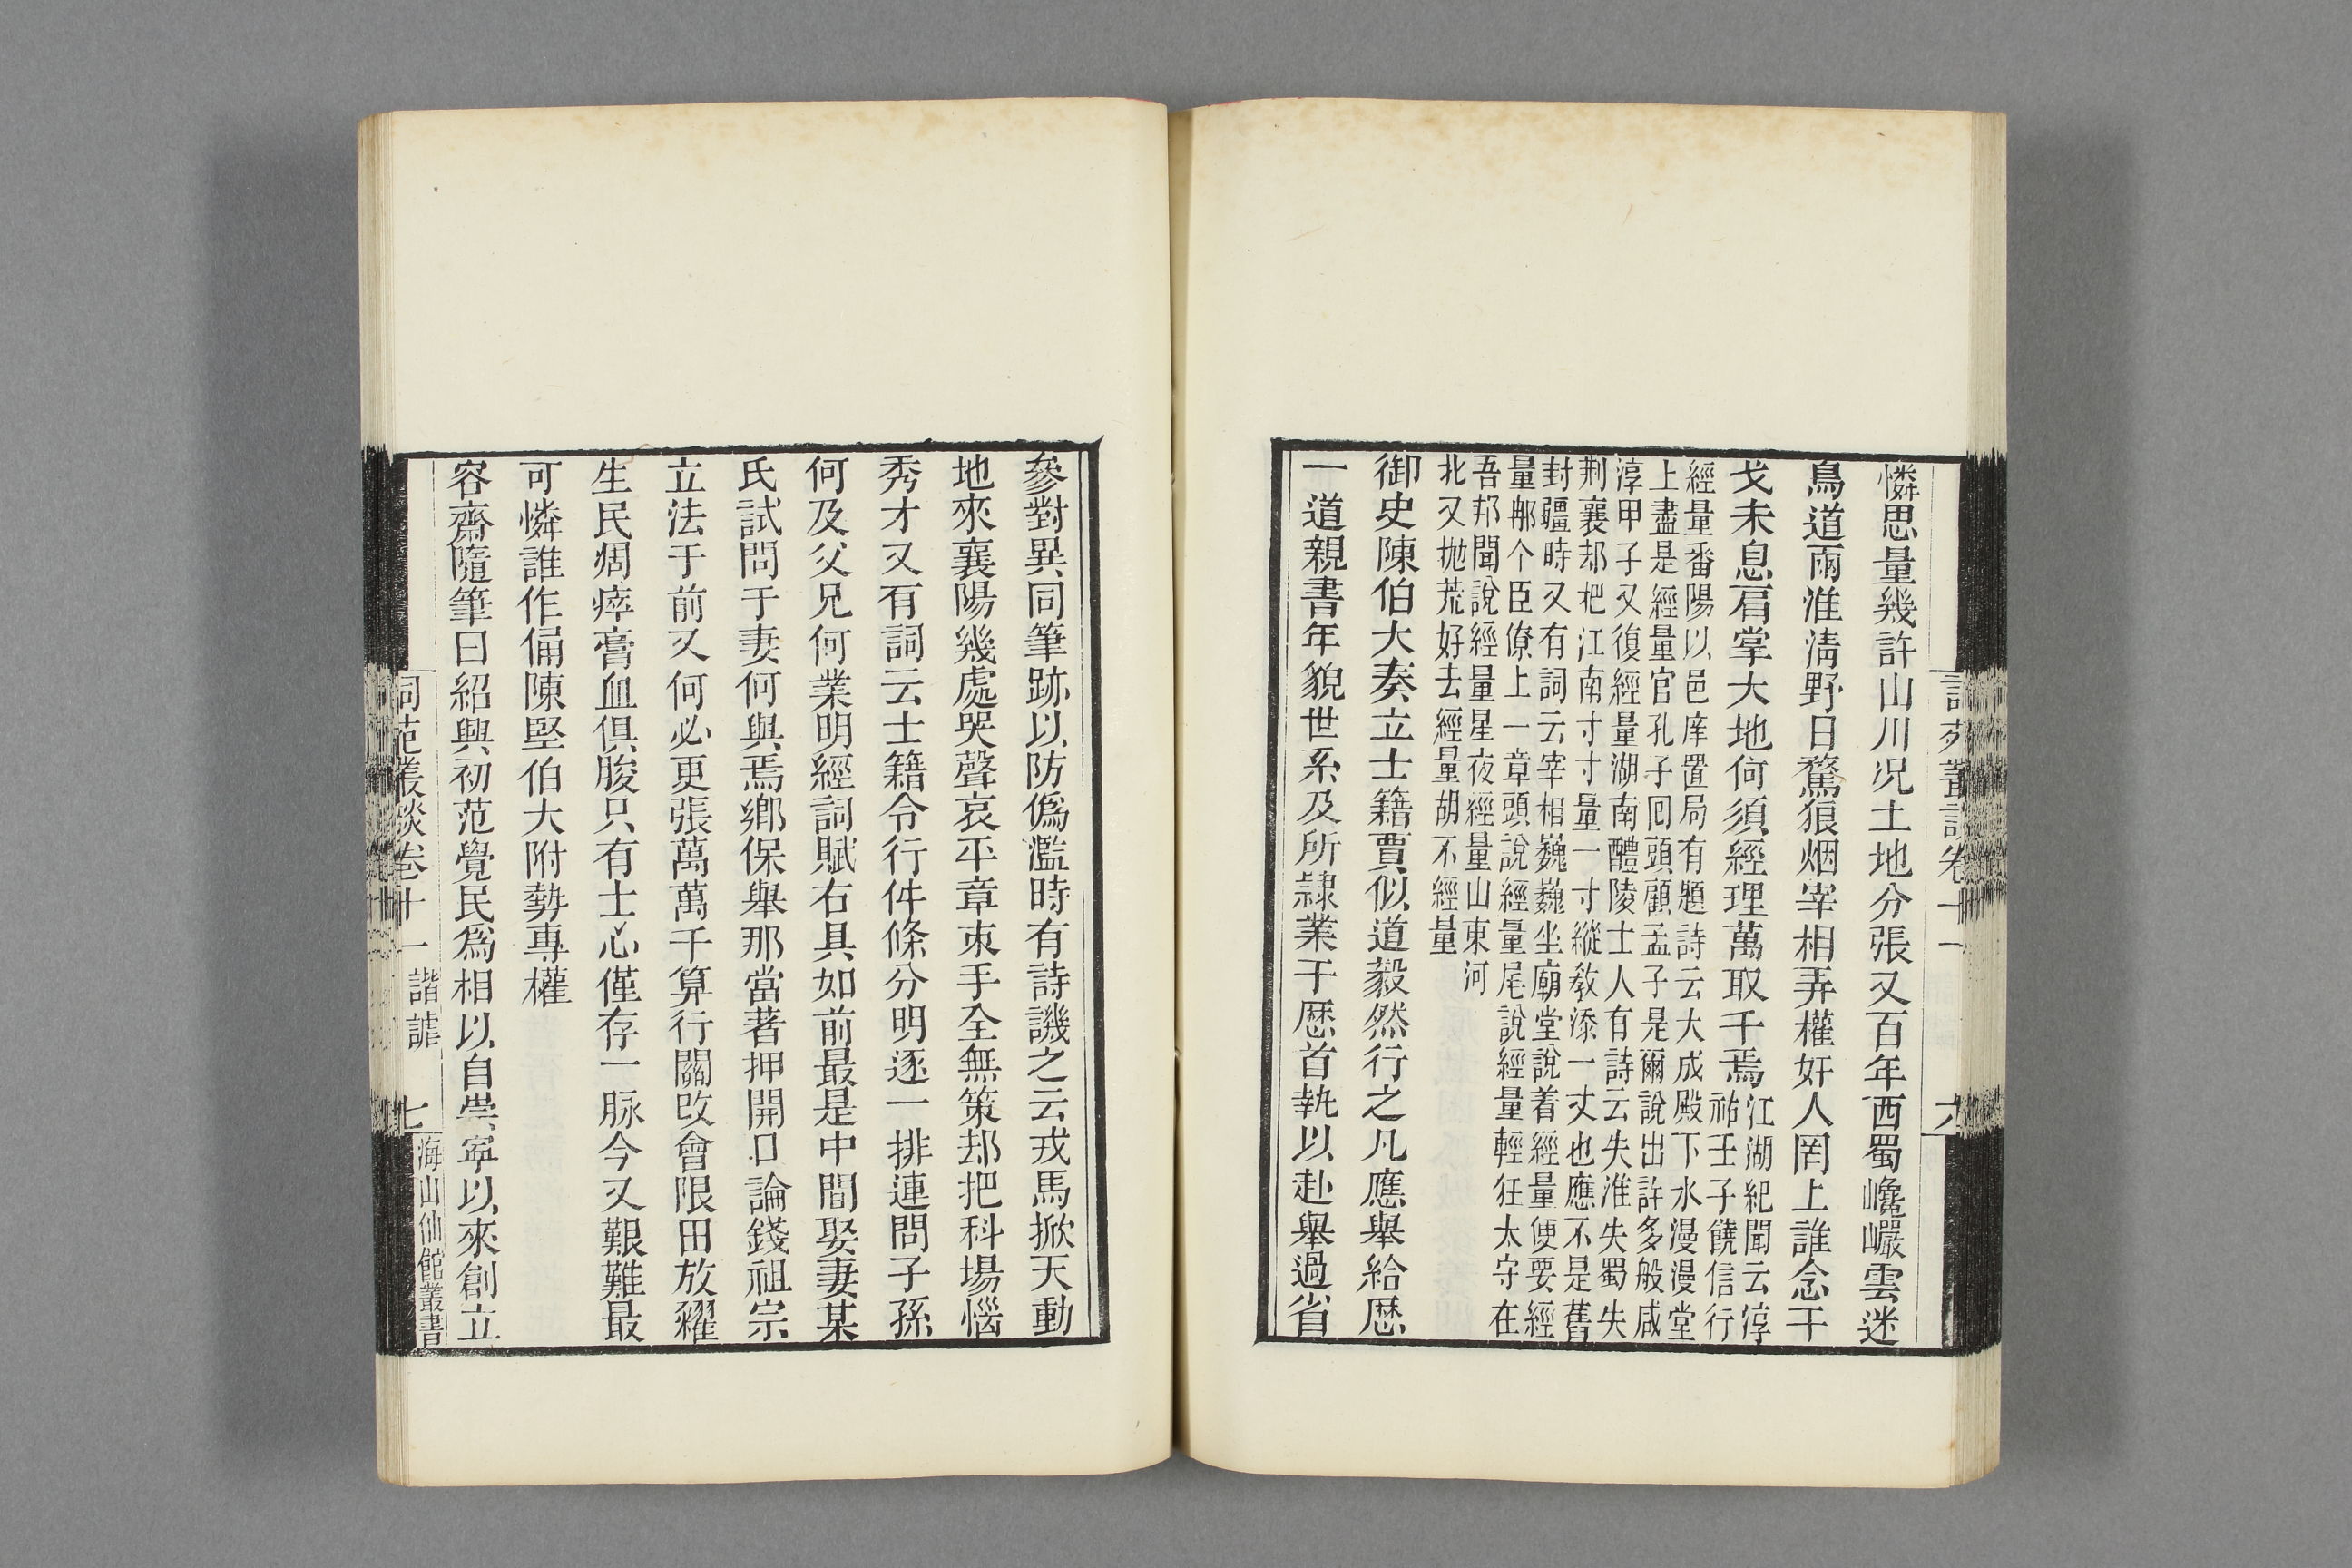 憐思量幾許山川况土地分張又百年西蜀巉巗雲迷
鳥道兩淮淸野日驚狼烟宰相弄權奸人罔上誰念干
戈未息肩掌大地何須經理萬取千焉
江湖紀聞云淳
祐壬子饒信行
經量番陽以邑庠置局有題詩云大成殿下水漫漫堂
上盡是經量官孔子回頭顧孟子是爾說出許多般咸
淳甲子又復經量湖南醴陵士人有詩云失淮失蜀失
荆襄却把江南寸寸量一寸縱教添一丈也應不是舊
封疆時又有詞云宰相巍巍坐廟堂說着經量便要經
量那个臣僚上一章頭說經量尾說經量輕狂太守在
吾邦聞說經量星夜經量山東河
北又抛荒好去經量胡不經量
御史陳伯大奏立士籍賈似道毅然行之凡應舉給歷
一道親書年貌世系及所隸業于歷首執以赴舉過省
參對異同筆跡以防僞濫時有詩譏之云戎馬掀天動
地來襄陽幾處哭聲哀平章束手全無策却把科場惱
秀才又有詞云士籍令行件條分明逐一排連問子孫
何及父兄何業明經詞賦右具如前最是中間娶妻某
氏試問于妻何與焉鄉保舉那當著押開口論錢祖宗
立法于前又何必更張萬萬千算行關改會限田放糴
生民凋瘁膏血俱朘只有士心僅存一脉今又艱難最
可憐誰作俑陳堅伯大附勢專權
容齋隨筆曰紹興初范覺民爲相以自崇寧以來創立
詞苑叢談卷十一 諧謔 七 海山仙館叢書